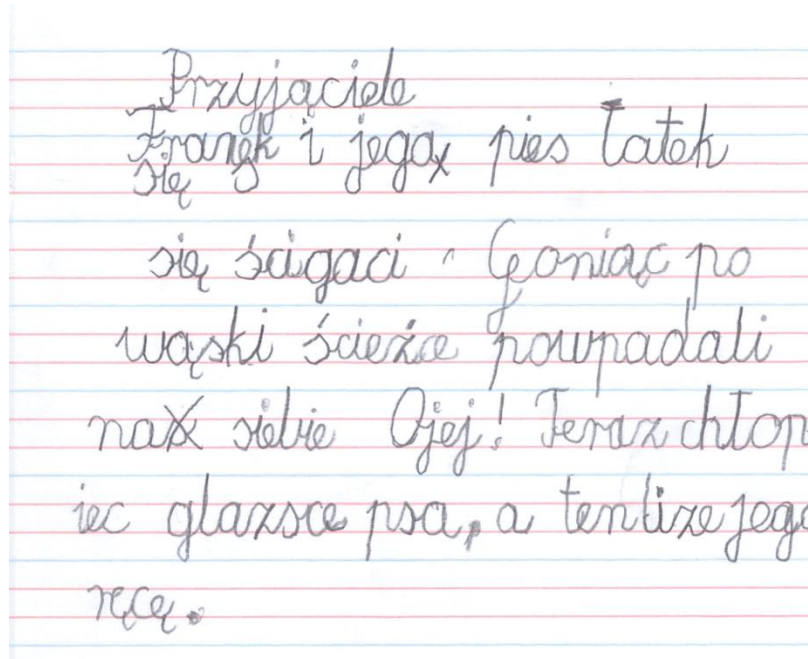 Przyjąciele
Franek i jego pies Łatek
się
się ścigaci. Goniąc po
wąski ścieżce powpadali
na siebie Ojej! Teraz chłop
iec głazsce psa, a ten liże jego
ręcę.